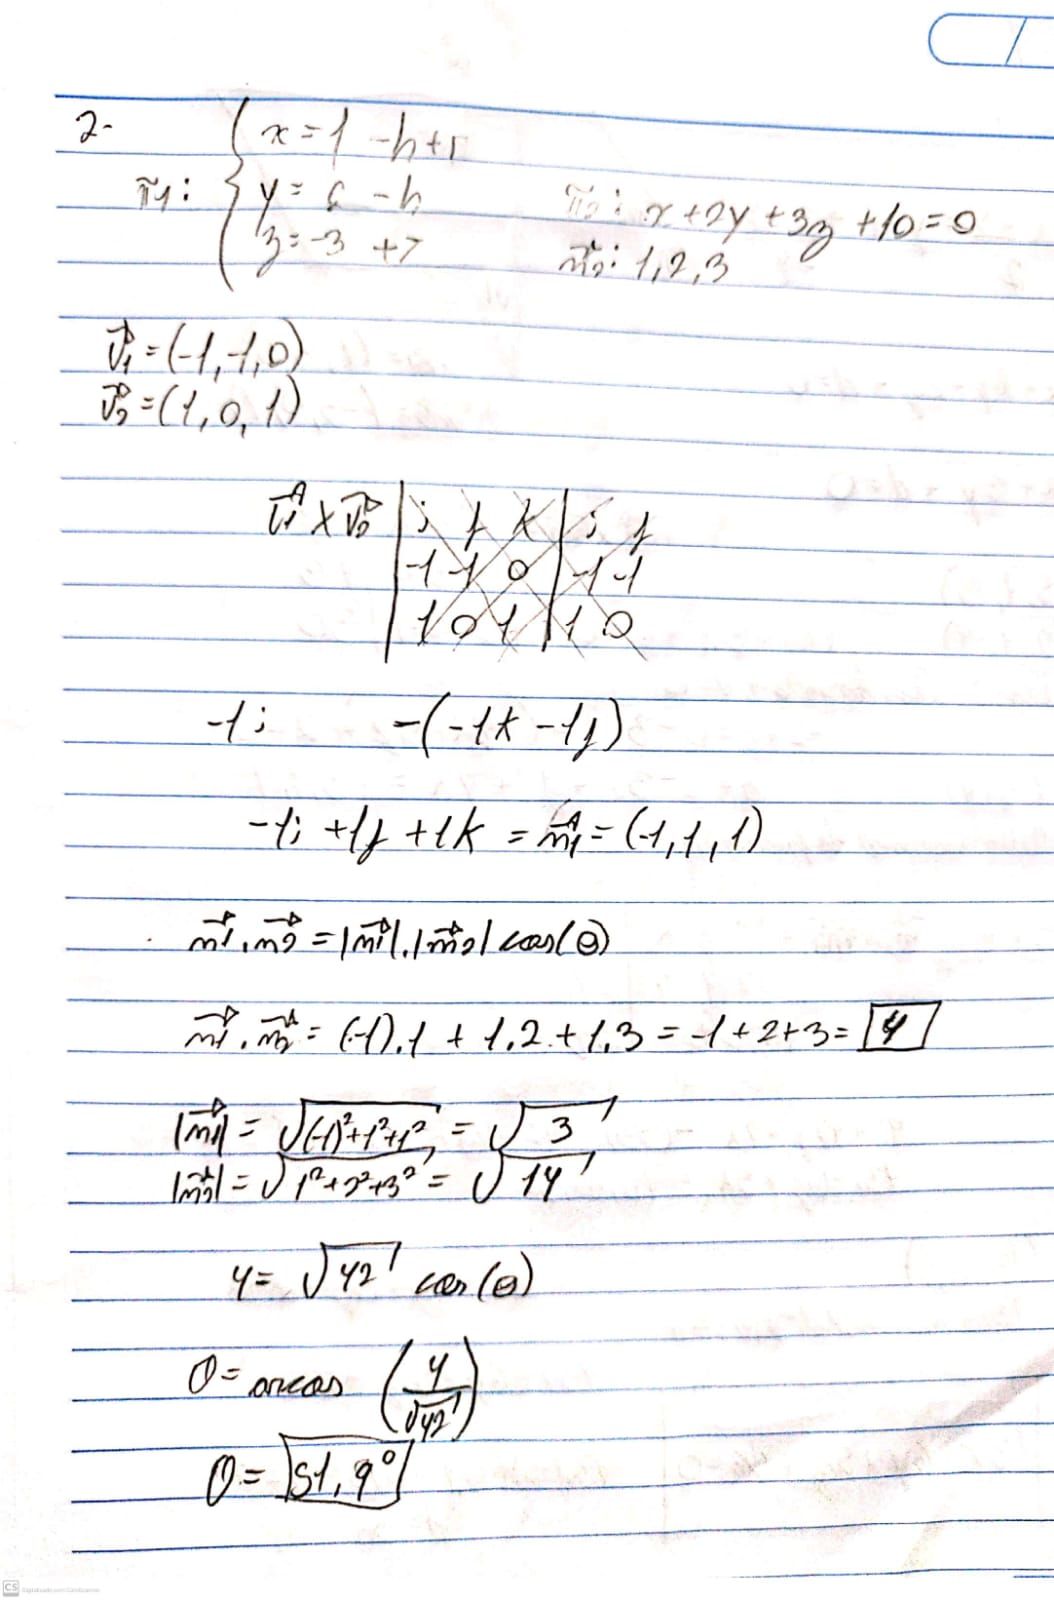 2-
π1: { x = 1 - h + r
y = 6 - h
z = -3 + r
π2: x + 2y + 3z + 10 = 0
n2: 1, 2, 3
v1 = (-1, -1, 0)
v2 = (1, 0, 1)
v1 x v2 | i j k | i j
-1 -1 0 | -1 -1
1 0 1 | 1 0
-1i -(-1k - 1j)
-1i + 1j + 1k = n1 = (-1, 1, 1)
n1 . n2 = |n1| . |n2| cos(θ)
n1 . n2 = (-1).1 + 1.2 + 1.3 = -1 + 2 + 3 = 4
|n1| = √((-1)² + 1² + 1²) = √3
|n2| = √(1² + 2² + 3²) = √14
4 = √42 cos(θ)
θ = arccos (4/√42)
θ = 51,9°
CS Digitalizado com CamScanner